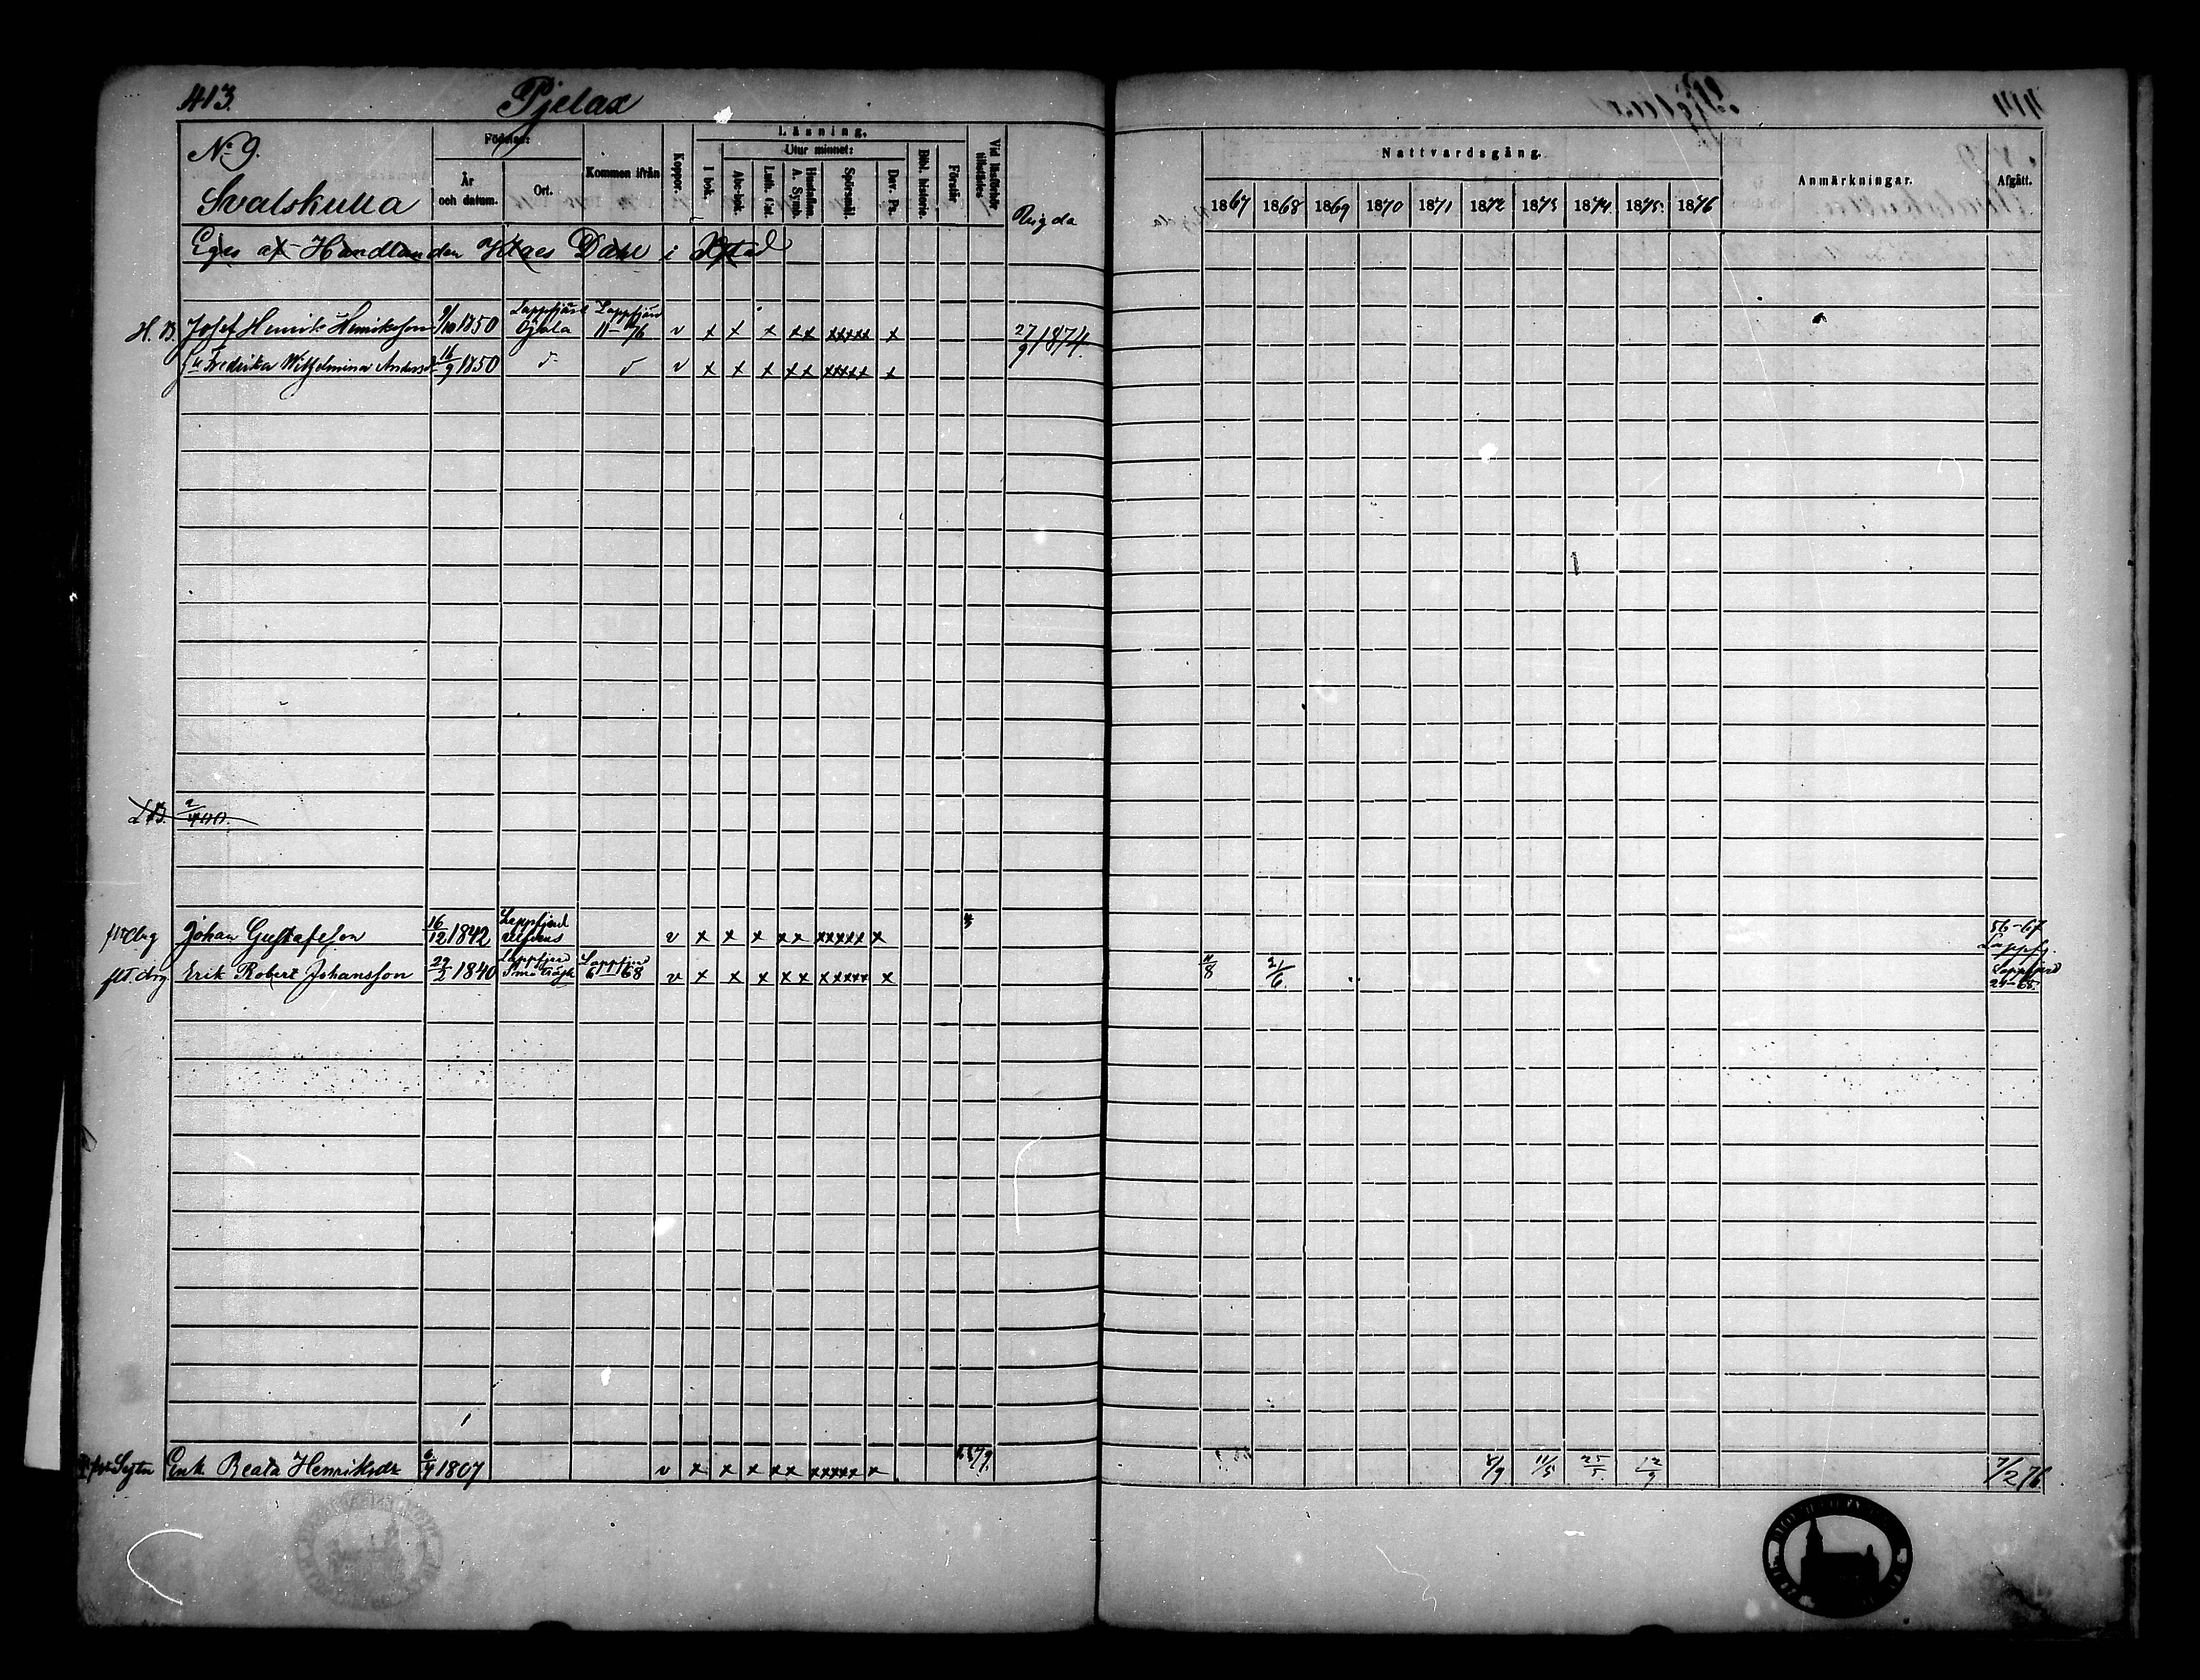 413.
Pjelax
No 9.
Svalskulla
Födelse:
År och datum.
Ort.
Kommen ifrån
Koppor.
Läsning.
I bok.
Utur minnet:
Abc-bok.
Luth. Cat.
Hustaflan A. Symb.
Spörsmål.
Dav. Ps.
Bibl. historie.
Förstår.
Vid läsförhör tillstädes.
Wigda
Eges af Handlanden Dahl i
H. B. Josef Henrik Henriksson 9/10 1850 Lappfjärd Öjala Lappfjärd 11 – 76 v x x x xx xxxxx x 27/9 1874.
Hu Fredrika Wilhelmina Andersd 16/9 1850 v x x x xx xxxxx x
Johan Gustafsson 16/12 1842 Lappfjerd v x x x xx xxxxx x
Erik Robert Johansson 29/2 1840 Lappfjerd Lappfjerd 6 – 68 v x x x xx xxxxx x
Enk. Beata Henriksdr 6/4 1807 v x x x xx xxxxx x
Nattvardsgång.
1867 1868 1869 1870 1871 1872 1873 1874 1875 1876
Anmärkningar.
Afgått.
56–67 Lappfj.
11/8 21/6 Lappfjerd
8/9 11/5 25/5 12/9 7/2 76